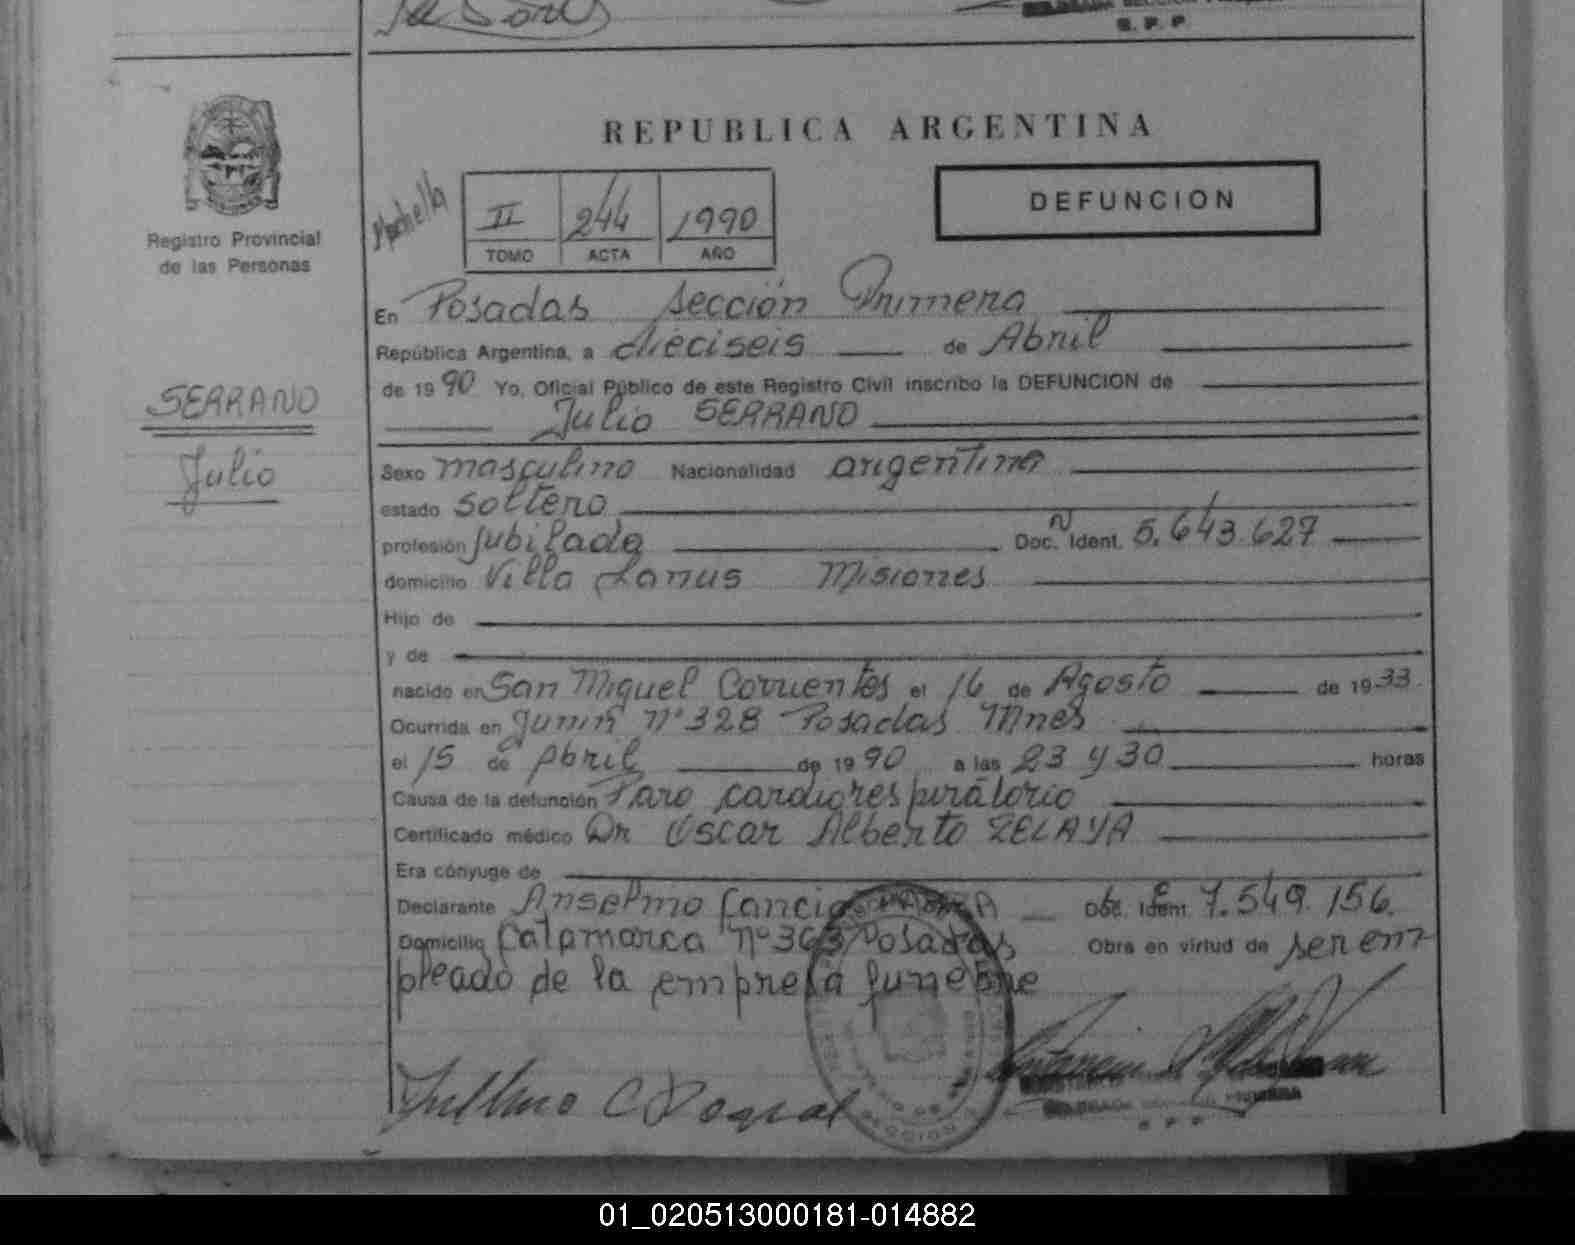 S. P. P.
REPUBLICA ARGENTINA
Registro Provincial
de las Personas
II 244 1990
TOMO ACTA AÑO
DEFUNCION
En Posadas Sección Primera
República Argentina, a dieciseis de Abril
de 1990 Yo, Oficial Público de este Registro Civil inscribo la DEFUNCION de
Julio SERRANO
SERRANO
Julio
Sexo masculino Nacionalidad argentina
estado soltero
profesión jubilado Doc. Ident. 5.643.627
domicilio Villa Lanus Misiones
Hijo de
y de
nacido en San Miguel Corrientes el 16 de Agosto de 1933
Ocurrida en Junin Nº 328 Posadas Mnes
el 15 de Abril de 1990 a las 23 y 30 horas
Causa de la defunción Paro cardiorespiratorio
Certificado médico Dr Oscar Alberto ZELAYA
Era cónyuge de
Declarante Anselmo Doc. Ident. 7.549.156.
Domicilio Catamarca Nº Posadas Obra en virtud de ser em
pleado de la empresa funebre
S. P. P.
01_020513000181-014882